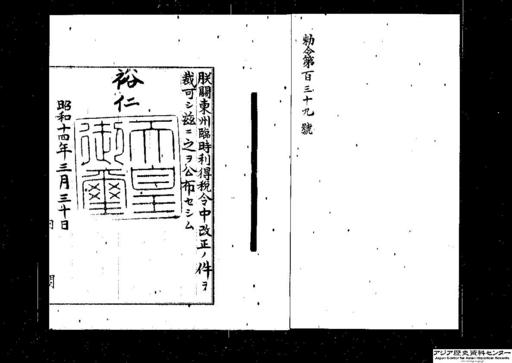 勅令第百三十九號
朕關東州臨時利得稅令中改正ノ件ヲ
裁可シ茲ニ之ヲ公布セシム
裕仁
天皇
御璽
昭和十四年三月三十日
内閣
アジア歴史資料センター
Japan Center for Asian Historical Records